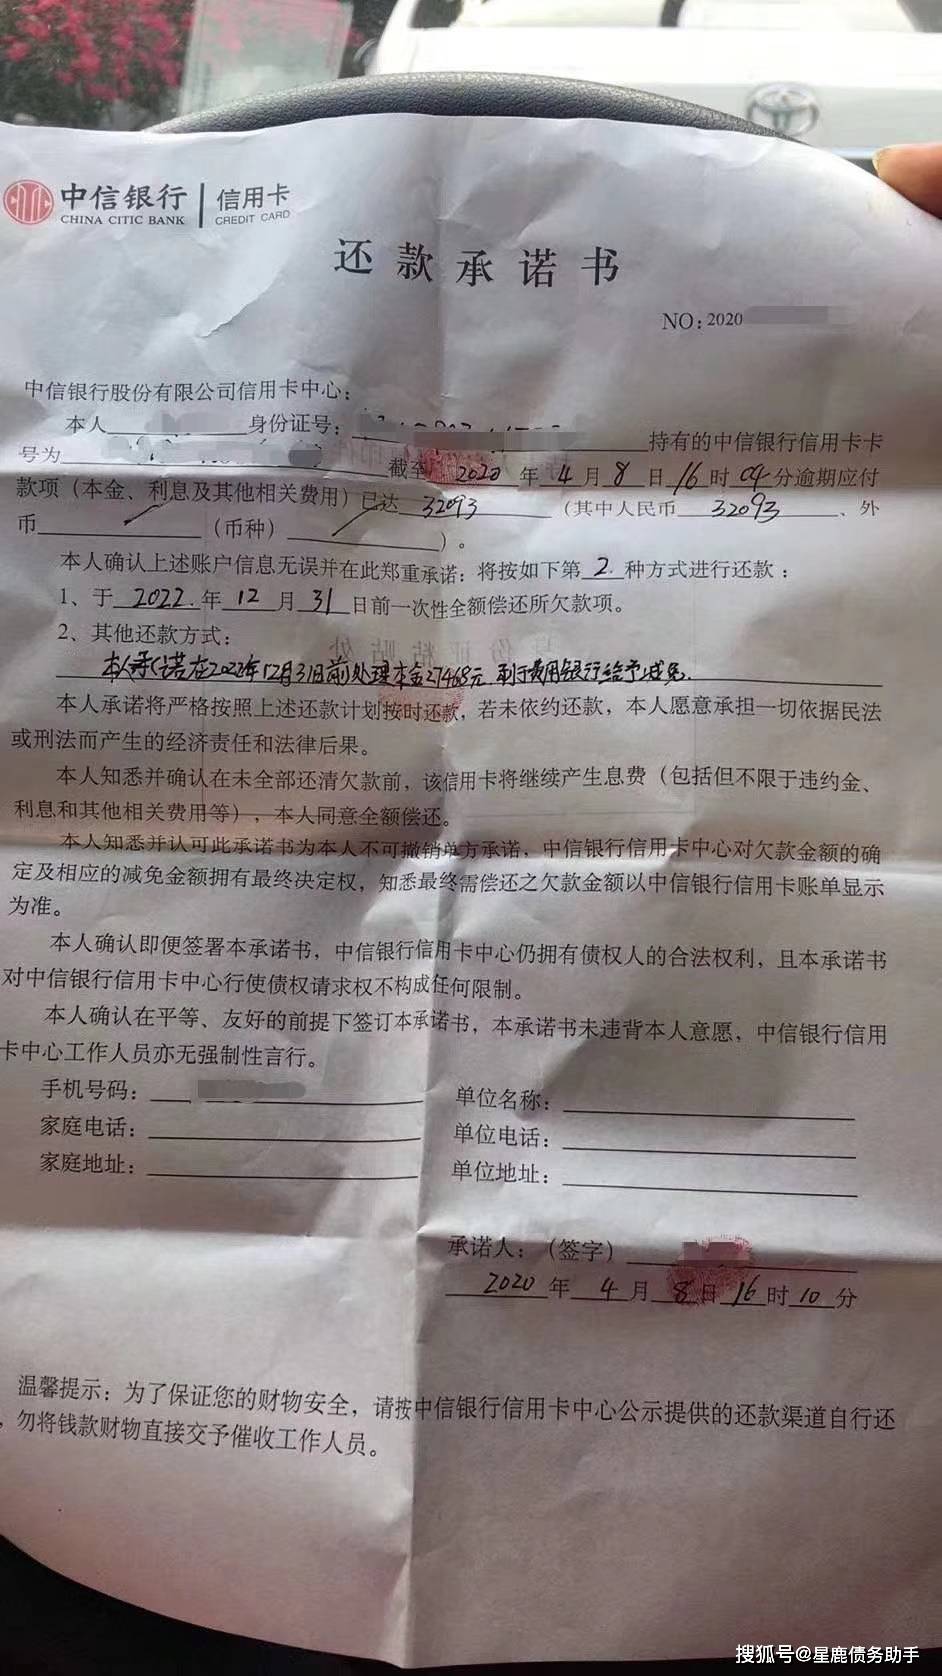 中信银行 信用卡
CHINA CITIC BANK CREDIT CARD
还款承诺书
NO: 2020
中信银行股份有限公司信用卡中心:
本人 身份证号: 持有的中信银行信用卡卡
号为 截至 2020 年 4 月 8 日 16 时 04 分逾期应付
款项（本金、利息及其他相关费用）已达 32093 （其中人民币 32093 、外
币 （币种） ）。
本人确认上述账户信息无误并在此郑重承诺：将按如下第 2. 种方式进行还款：
1、于 2022. 年 12 月 31 日前一次性全额偿还所欠款项。
2、其他还款方式：
本人承诺在2022年12月31日前处理本金27468元 利息费用银行给予减免.
本人承诺将严格按照上述还款计划按时还款，若未依约还款，本人愿意承担一切依据民法
或刑法而产生的经济责任和法律后果。
本人知悉并确认在未全部还清欠款前，该信用卡将继续产生息费（包括但不限于违约金、
利息和其他相关费用等），本人同意全额偿还。
本人知悉并认可此承诺书为本人不可撤销单方承诺，中信银行信用卡中心对欠款金额的确
定及相应的减免金额拥有最终决定权，知悉最终需偿还之欠款金额以中信银行信用卡账单显示
为准。
本人确认即便签署本承诺书，中信银行信用卡中心仍拥有债权人的合法权利，且本承诺书
对中信银行信用卡中心行使债权请求权不构成任何限制。
本人确认在平等、友好的前提下签订本承诺书，本承诺书未违背本人意愿，中信银行信用
卡中心工作人员亦无强制性言行。
手机号码： 单位名称：
家庭电话： 单位电话：
家庭地址： 单位地址：
承诺人：（签字）
2020 年 4 月 8 日 16 时 10 分
温馨提示：为了保证您的财物安全，请按中信银行信用卡中心公示提供的还款渠道自行还
，勿将钱款财物直接交予催收工作人员。
搜狐号@星鹿债务助手